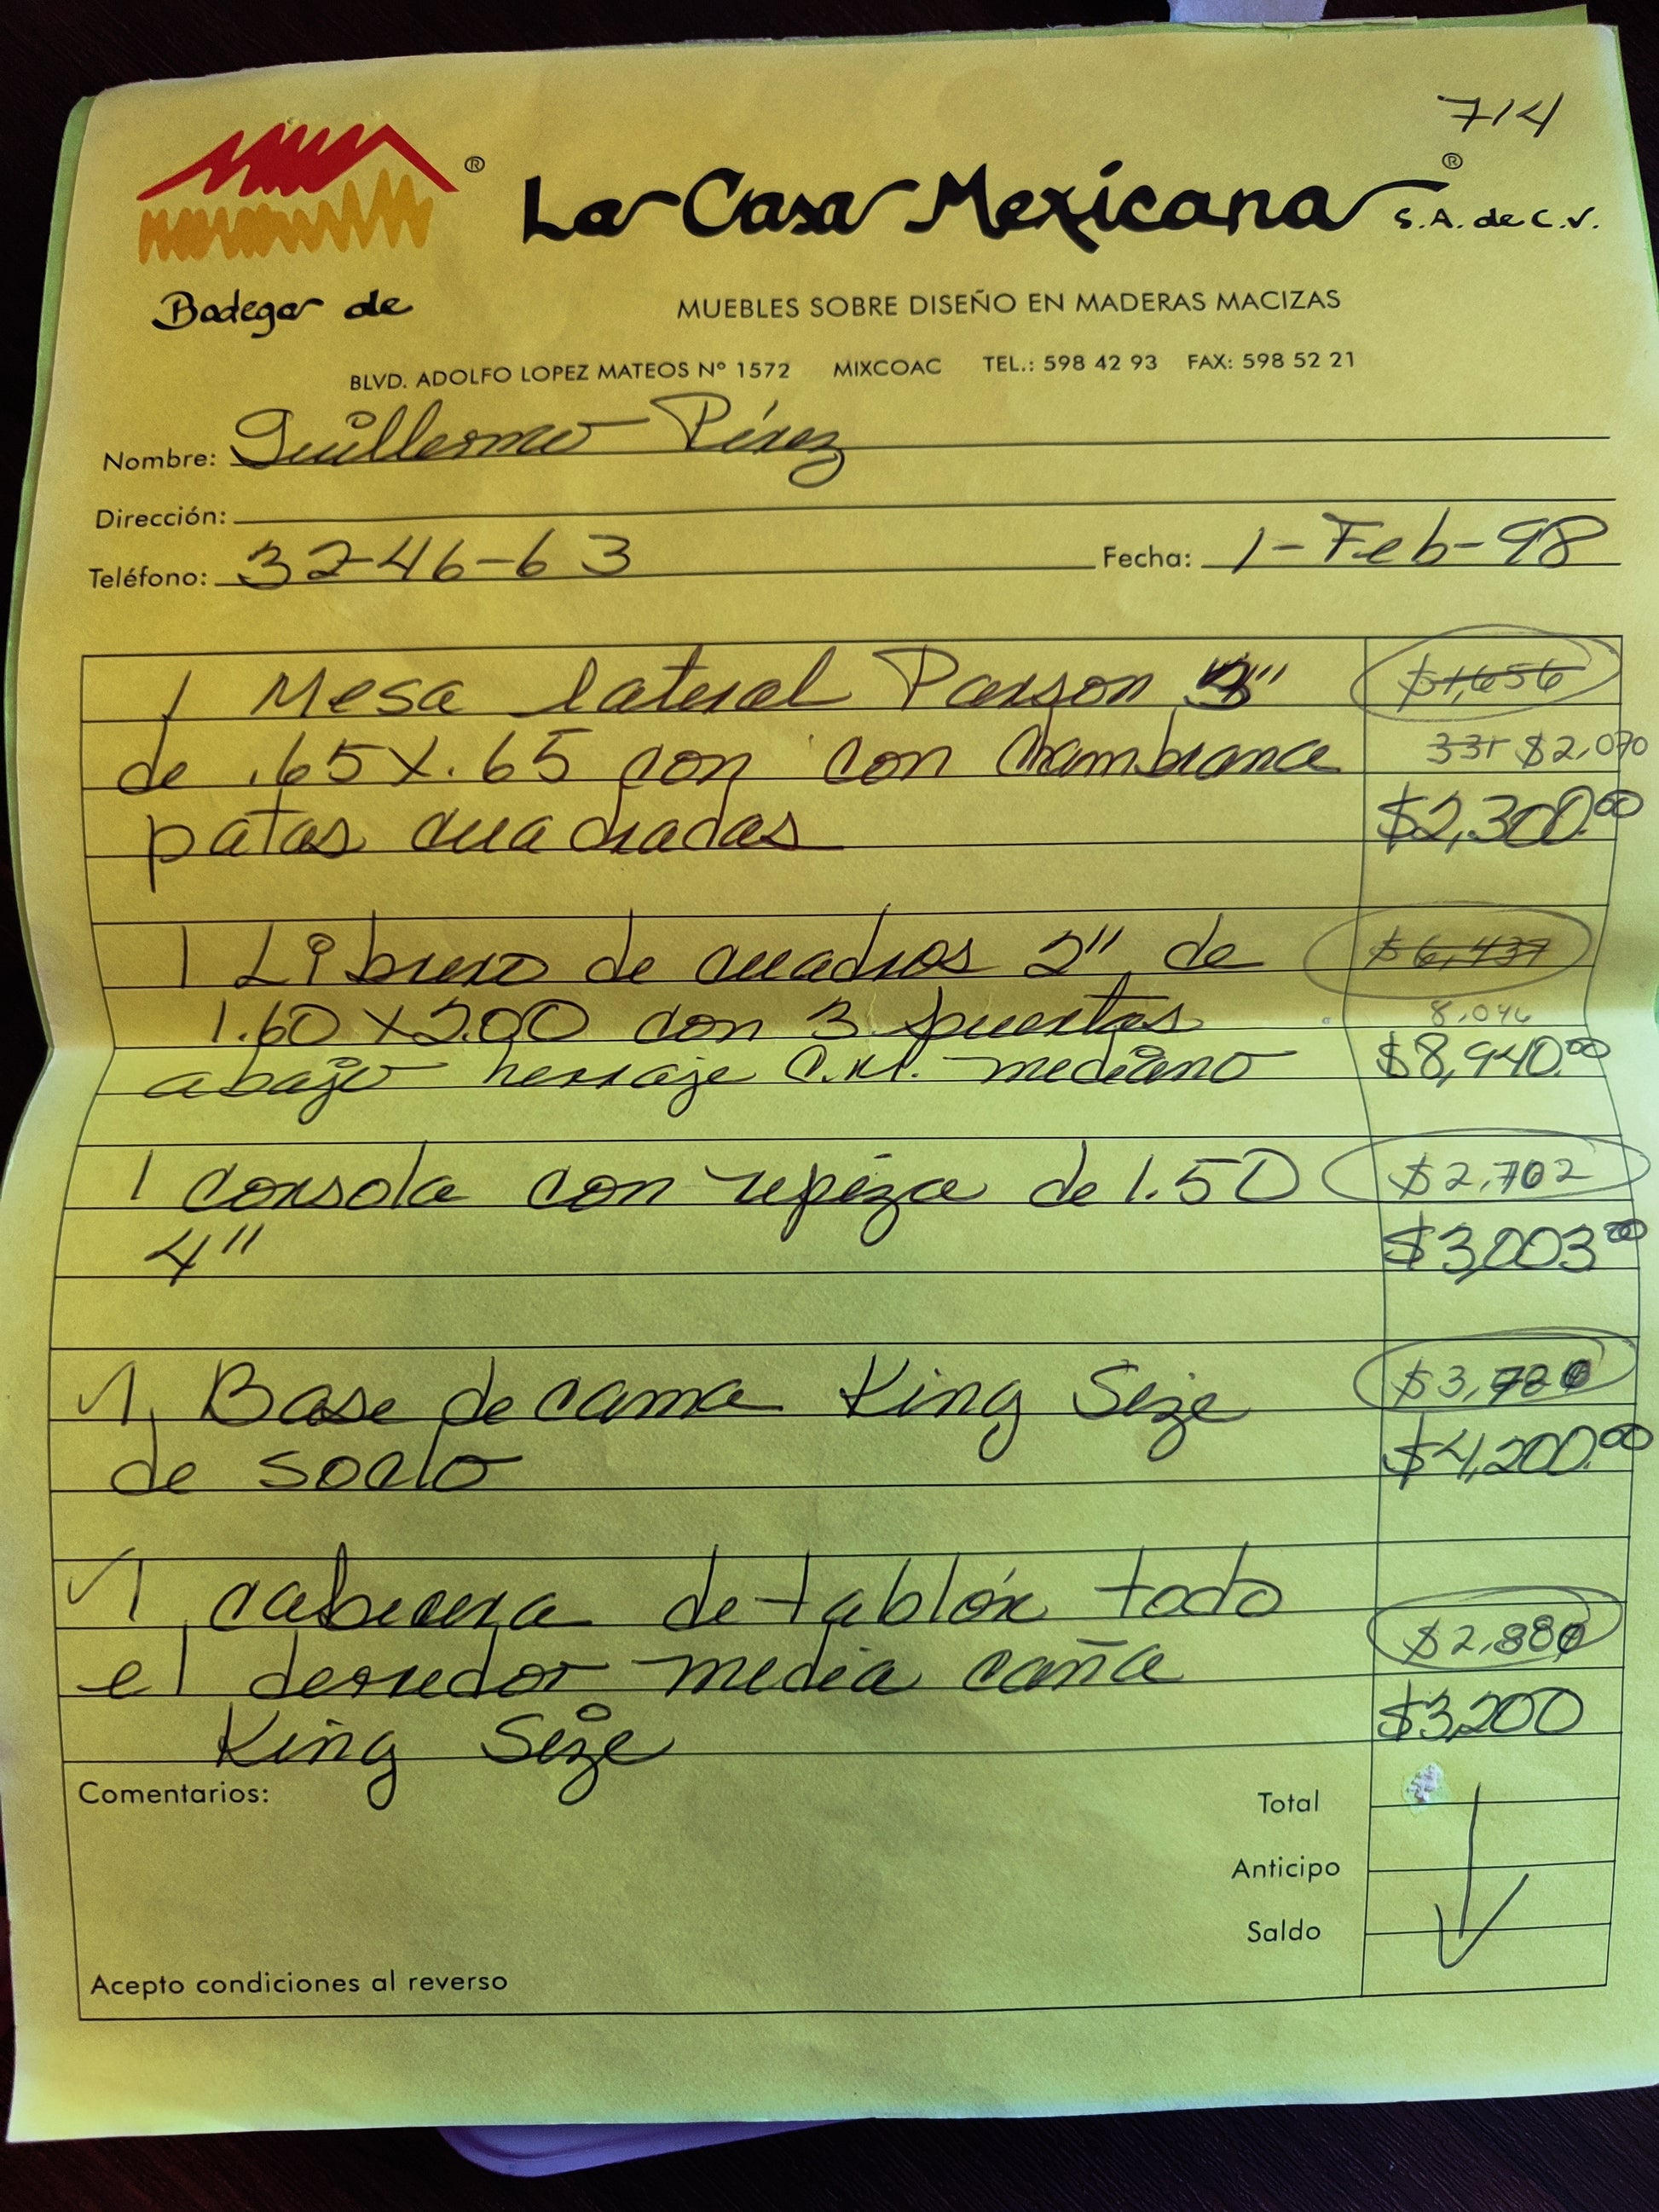 714
La Casa Mexicana S.A. de C.V.
Bodega de
MUEBLES SOBRE DISEÑO EN MADERAS MACIZAS
BLVD. ADOLFO LOPEZ MATEOS Nº 1572 MIXCOAC TEL.: 598 42 93 FAX: 598 52 21
Nombre: Guillermo Pérez
Dirección:
Teléfono: 32-46-63 Fecha: 1-Feb-98
1 Mesa lateral Parson 3" $1,656
de .65x.65 con con chambrana 331 $2,070
patas cuadradas $2,300.00
1 Librero de cuadros 2" de $6,437
1.60x2.00 con 3 puertas 8,046
abajo herraje C.M. mediano $8,940.00
1 consola con repiza de 1.50 $2,702
4" $3,003.00
1 Base de cama King Size
de soclo $4,200.00
1 cabecera de tablón todo
el derredor media caña $2,880
King Size $3,200
Comentarios:
Total
Anticipo
Saldo
Acepto condiciones al reverso